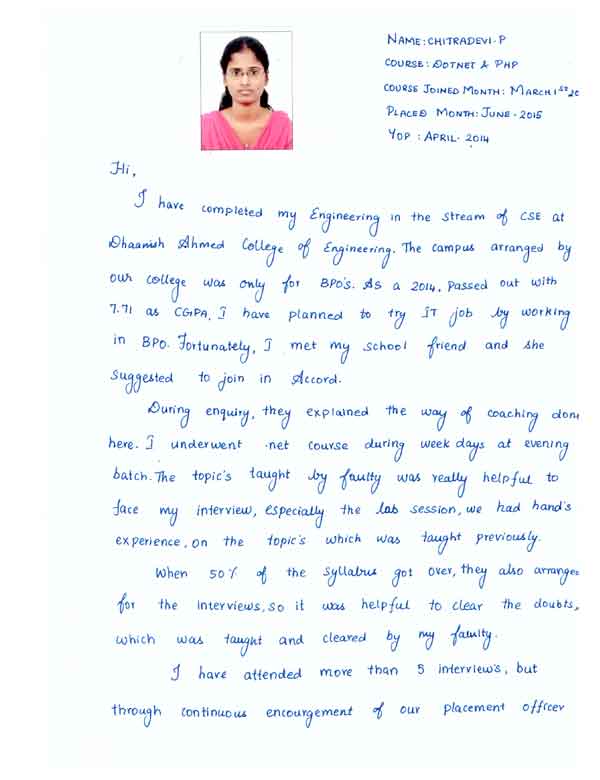 NAME: CHITRADEVI.P
COURSE: DOTNET & PHP
COURSE JOINED MONTH: MARCH 1ST 20
PLACED MONTH: JUNE-2015
YOP: APRIL-2014
Hi,
I have completed my Engineering in the stream of CSE at
Dhaanish Ahmed College of Engineering. The campus arranged by
our college was only for BPO's. As a 2014, passed out with
7.71 as CGPA, I have planned to try IT job by working
in BPO. Fortunately, I met my school friend and she
suggested to join in Accord.
During enquiry, they explained the way of coaching done
here. I underwent .net course during week days at evening
batch. The topic's taught by faulty was really helpful to
face my interview, especially the lab session, we had hand's
experience, on the topic's which was taught previously.
When 50% of the syllabus got over, they also arrange
for the interviews, so it was helpful to clear the doubts,
which was taught and cleared by my faulty.
I have attended more than 5 interview's, but
through continuous encourgement of our placement officer